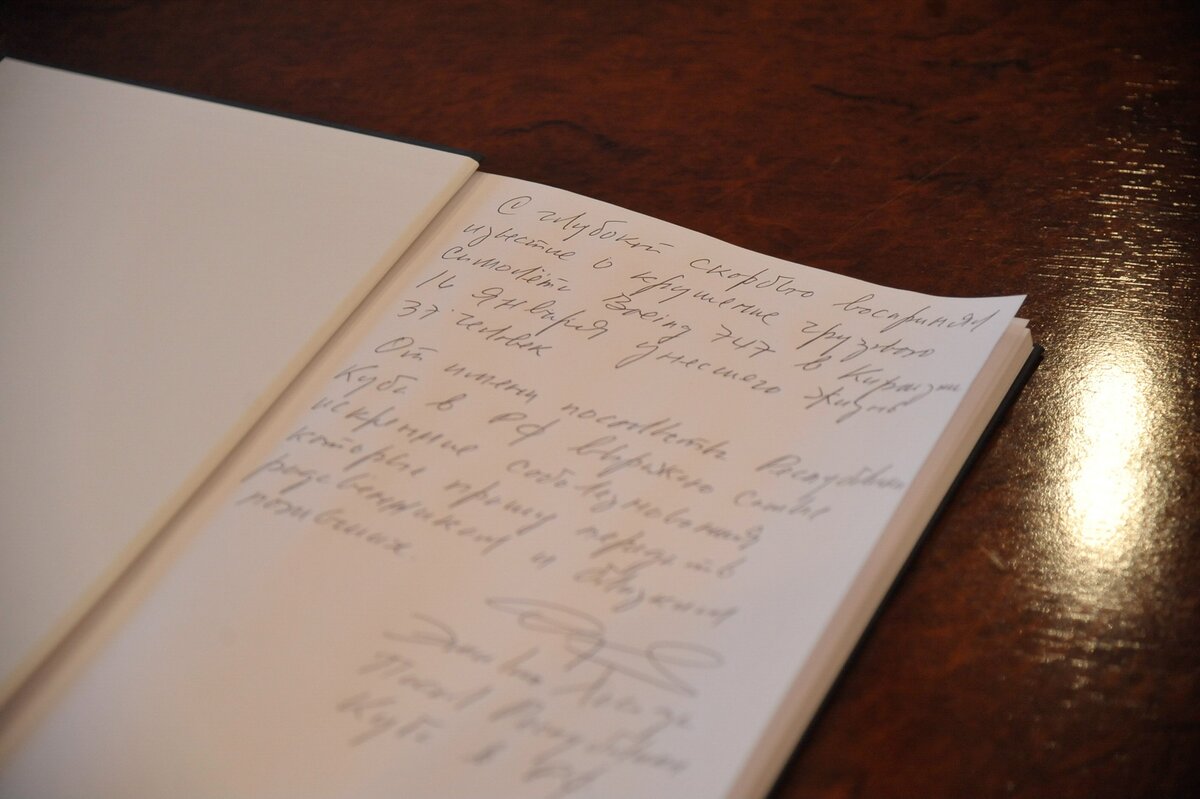 С глубокой скорбью воспринял
известие о крушение грузового
самолёта Boeing 747 в Киргизии
16 января унесшего жизнь
37 человек
От имени посольства Республики
Куба в РФ выражаю самые
искренние соболезнования
которые прошу передать
родственникам и близким
погибших.
Посол Республики
Куба в РФ